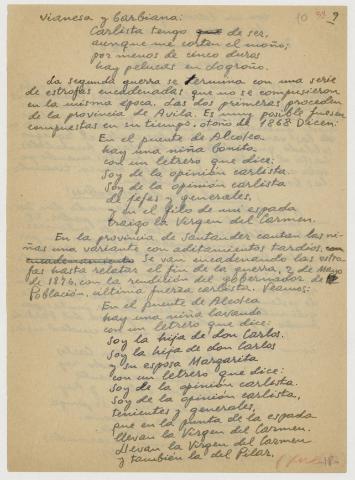 Vianesa y Barbiana:
10 ?
Carlista tengo que de ser,
aunque me corten el moño;
por menos de cinco duros
hay pelucas en Logroño.
La segunda guerra se termina con una serie
de estrofas encadenadas que no se compusieron
en la misma época. Las dos primeras proceden
de la provincia de Avila. Es muy posible fuesen
compuestas en su tiempo: otoño de 1868. Dicen:
En el puente de Alcolea
hay una niña bonita
con un letrero que dice:
Soy de la opinión carlista.
Soy de la opinión carlista
de jefes y generales,
y en el filo de mi espada
traigo la Virgen del Carmen.
En la provincia de Santander cantan las ni-
ñas una variante con aditamentos tardíos,
Se van encadenando las estro-
fas hasta relatar el fin de la guerra, 2 de Mayo
de 1876, con la rendición del gobernador de
Población, última fuerza carlista. Veamos:
En el puente de Alcolea
hay una niña lavando
con un letrero que dice:
Soy la hija de don Carlos.
Soy la hija de don Carlos
y su esposa Margarita
con un letrero que dice:
Soy de la opinión carlista.
Soy de la opinión carlista,
tenientes y generales,
que en la punta de la espada
llevan la Virgen del Carmen.
Llevan la Virgen del Carmen
y también la del Pilar,